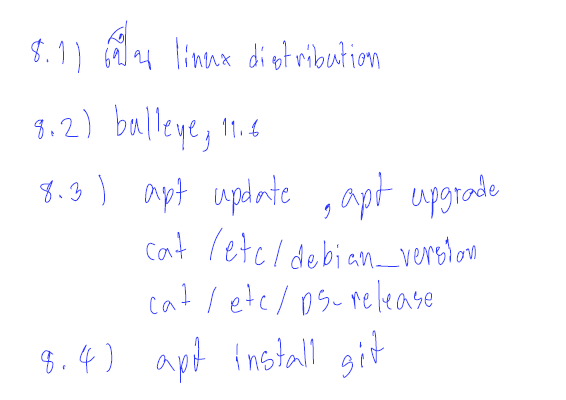 8.1) เป็น linux distribution
8.2) bulleye, 11.6
8.3) apt update , apt upgrade
cat /etc/debian_version
cat /etc/os-release
8.4) apt install git